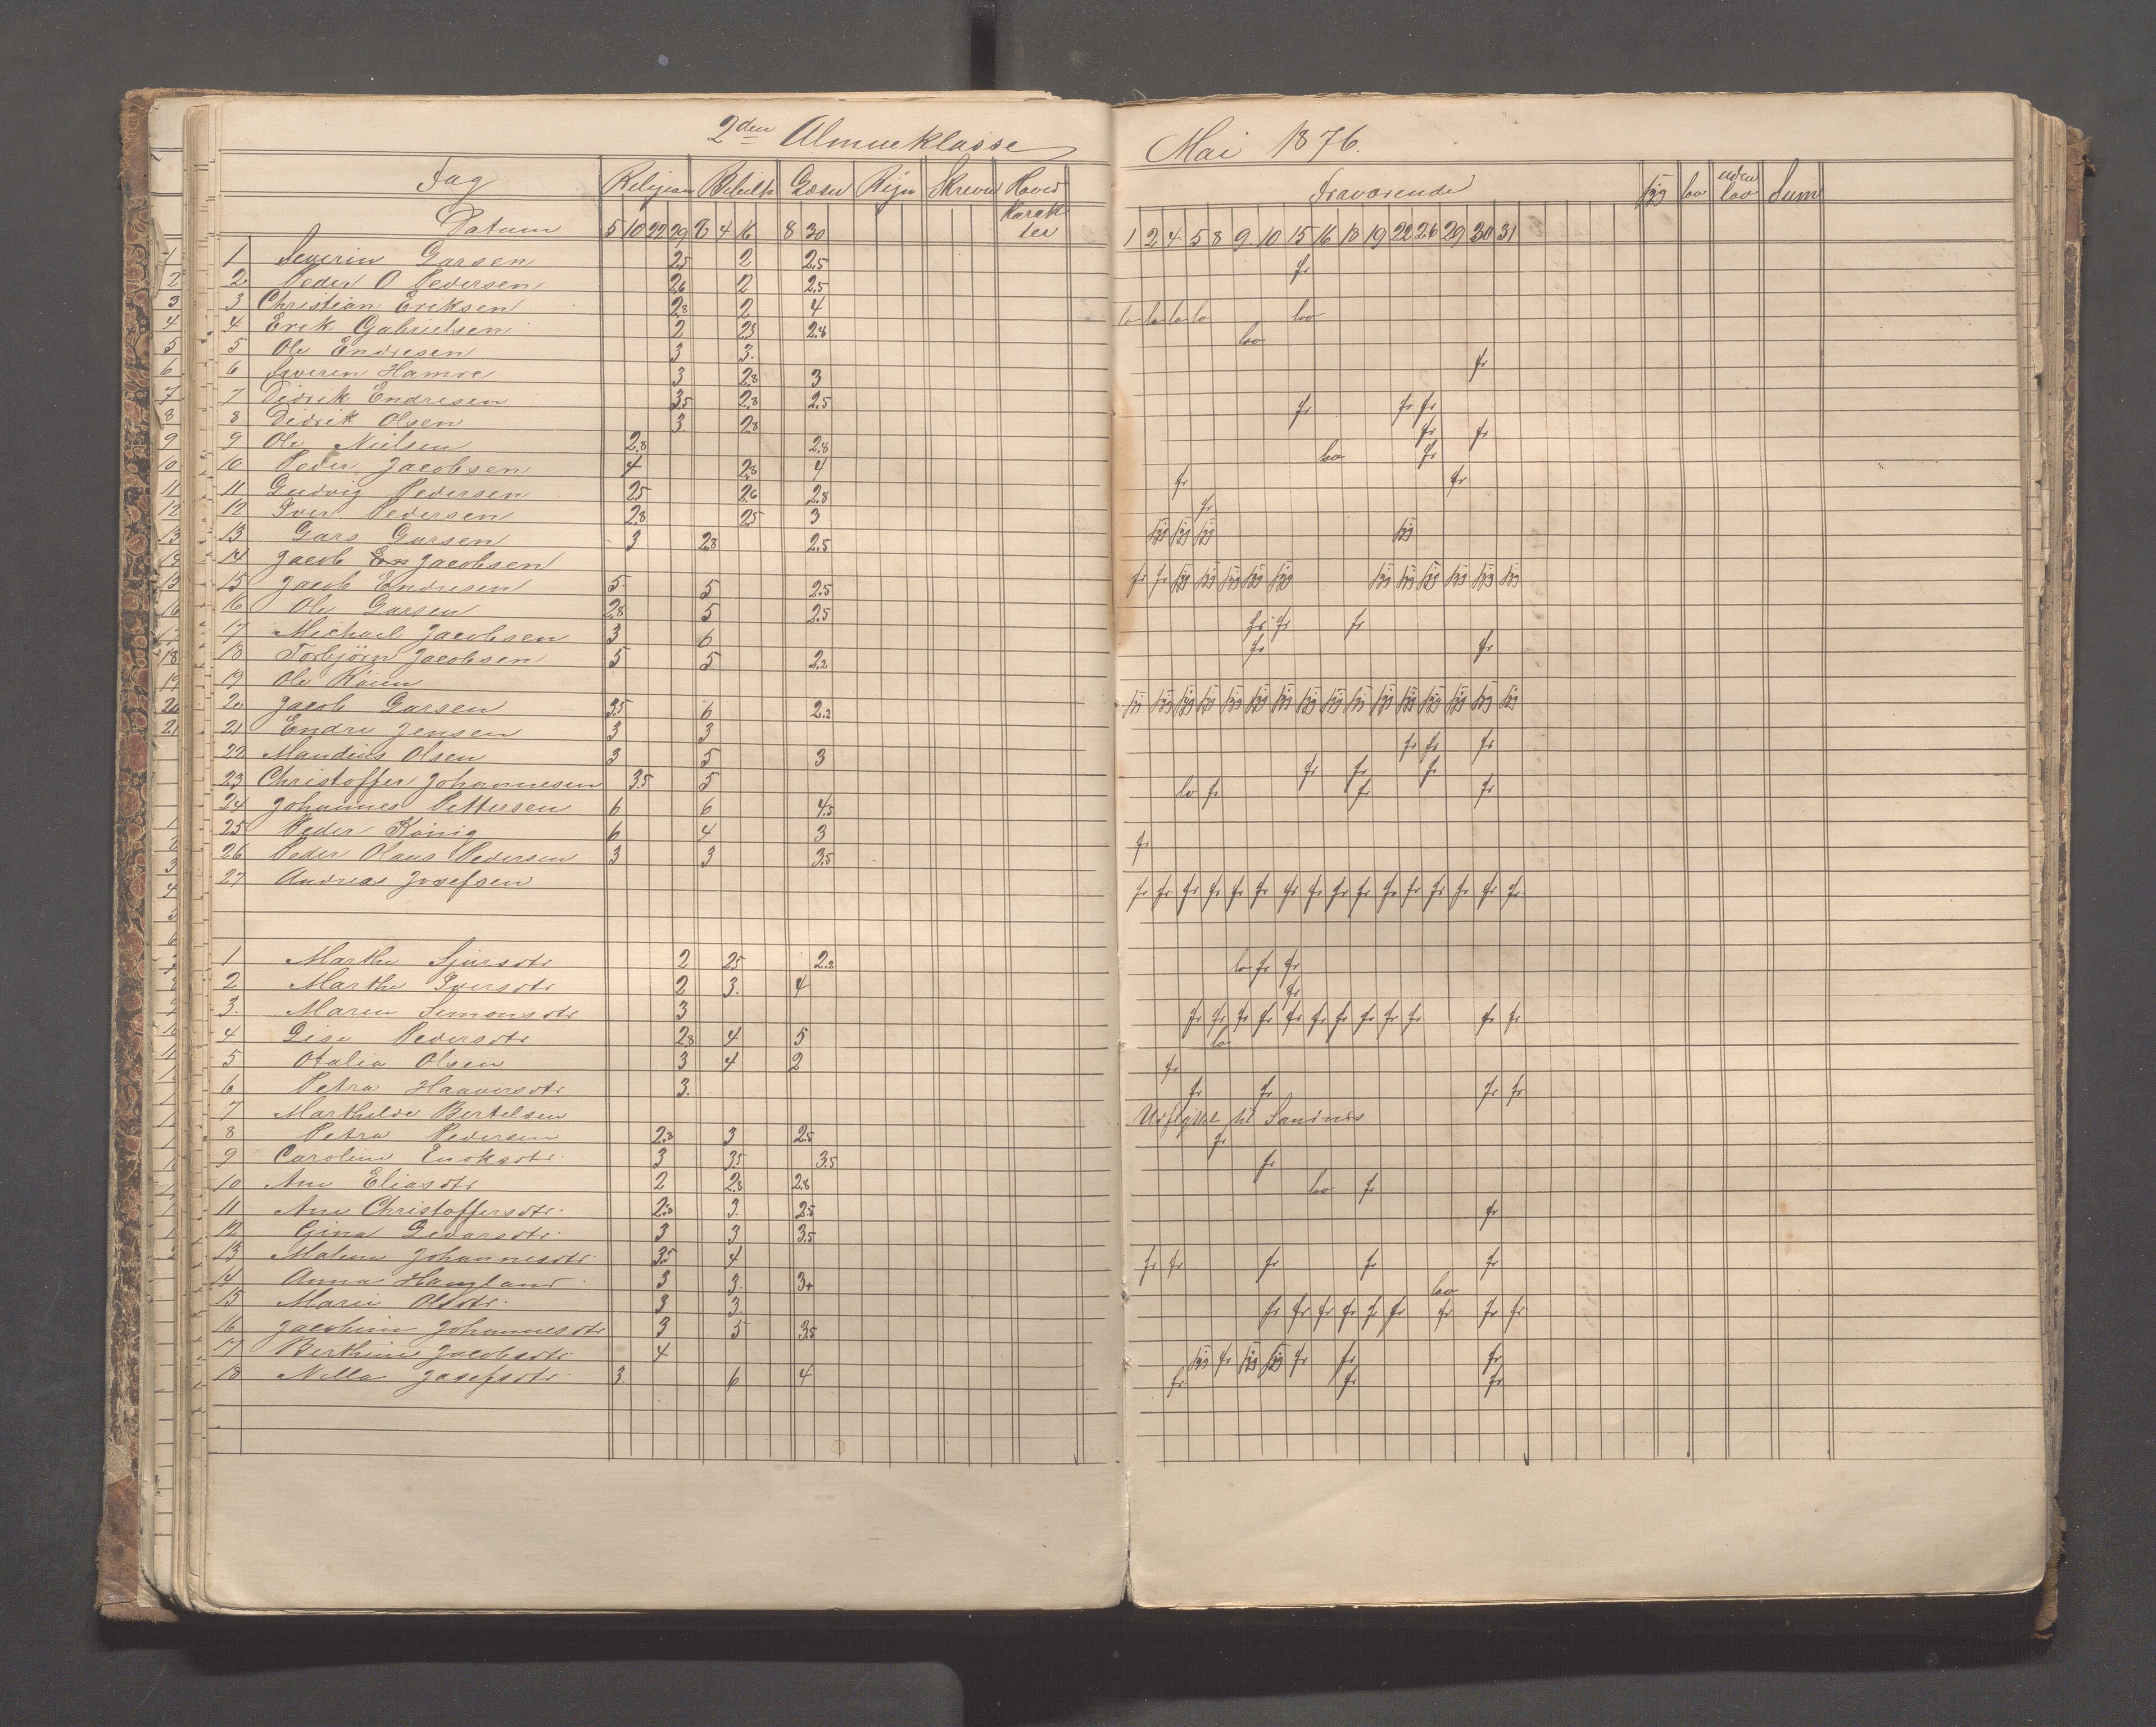 2den Almueklasse
Mai 1876.
Fag Religion Læsn Regn Skrivn Hoved karak ter
Fraværende syg lov uden lov Sum
Datum 5 10 22 29 2 4 16 8 30
1 2 4 5 8 9 10 15 16 18 19 22 26 29 30 31
1 Severin Larsen 2.5 2 2.5 fr
2 Peder O Pedersen 2.6 2 2.5
3 Christian Eriksen 2.8 2 4 lo lo lo lo lov
4 Erik Gabrielsen 2 2.5 2.8 lov
5 Ole Endresen 3 3. fr
6 Severin Hamre 3 2.8 3
7 Didrik Endresen 3.5 2.8 2.5 fr fr fr
8 Didrik Olsen 3. 2.8 fr fr
9 Ole Nielsen 2.8 2.8 lov fr
10 Peder Jacobsen 4 2.8 4 fr fr
11 Ludvig Pedersen 2.5 2.6 2.8 fr
12 Iver Pedersen 2.8 2.5 3 syg syg syg syg
13 Lars Larsen 3 2.8 2.5
14 Jacob En Jacobsen fr fr syg syg syg syg syg syg syg syg syg syg syg
15 Jacob Endresen 5. 5 2.5
16 Ole Larsen 2.8 5 2.5 fr fr fr
17 Michael Jacobsen 3 6 fr fr
18 Torbjörn Jacobsen 5 5 2.2
19 Ole Röien syg syg syg syg syg syg syg syg syg syg syg syg syg syg syg syg
20 Jacob Larsen 3.5 6 2.2
21 Endre Jensen 3 3 fr fr fr
22 Mandius Olsen 3 5 3 fr fr fr
23 Christoffer Johannesen 3.5 5 lo fr fr fr
24 Johannes Pettersen 6 6 4.5
25 Peder König 6 4 3 fr
26 Peder Olaus Pedersen 3 3 3.5
27 Andreas Josefsen fr fr fr fr fr fr fr fr fr fr fr fr fr fr fr fr
1 Marthe Sjursdtr 2 2.5 2.2 lo fr fr
2 Marthe Iversdtr 2 3. 4 fr
3. Maren Simonsdtr 3 fr fr fr fr fr fr fr fr fr fr fr fr
4 Lise Pedersdtr 2.8 4 5 lo
5 Otalia Olsen 3 4 2 fr
6 Petra Haaversdtr 3. fr fr fr fr
7 Marthilde Bertelsen Udflyttet til Sandnes
8 Petra Pedersen 2.8 3 2.5 fr
9 Caroline Enoksdtr. 3 3.5 3.5 fr
10 Ane Eliasdtr 2 2.8 2.8 lov fr
11 Ane Christoffersdtr. 2.8 3. 2.5 fr
12 Gina Levarsdtr. 3 3 3.5
13 Malene Johannesdtr. 3.5 4 fr fr fr fr fr
14 Anna Haugland 3 3. 3+ lov
15 Marie Olsdtr. 3 3 fr fr fr fr fr fr fr fr fr
16 Jacobine Johannesdtr 3 5 3.5
17 Berthine Jacobsdtr. 4 syg fr syg syg fr fr fr
18 Nilla Josefsdtr. 3. 6 4 fr fr fr